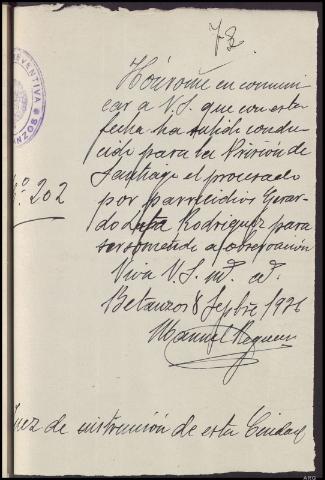 78
Hónrome en comuni
car a V.S. que con esta
fecha ha salido condu
cido para la Prisión de
Santiago el procesado
por parricidio Gerar-
do Rodriguez para
ser sometido a observación
Viva V.S. m.s a.s
Betanzos 8 Sepbre 1926
Manuel
Nº 202
EVENTIVA
ANZOS
Juez de instrucción de esta Ciudad
ARG